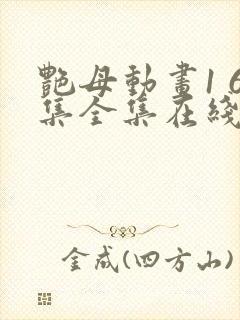 艷母動畫1 6
集全集在綫
金成(四方山)